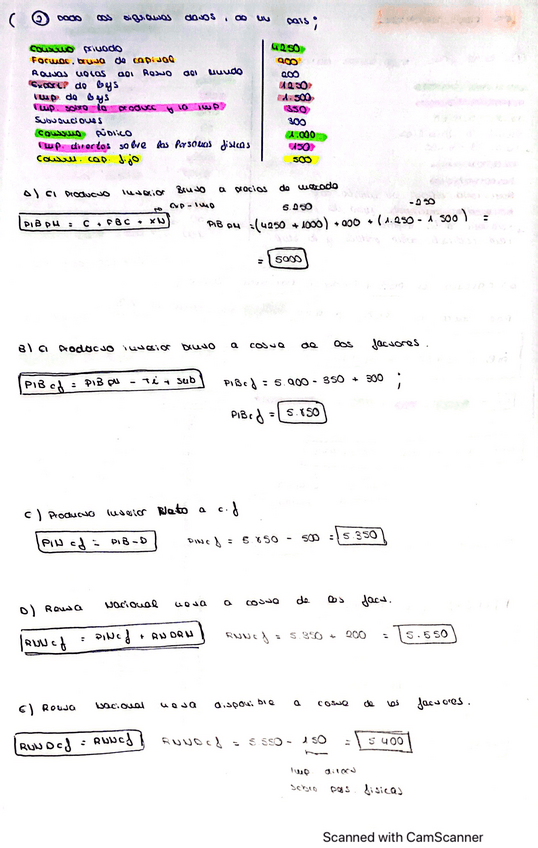 ( ② Dado los siguientes datos, de un país;
Consumo privado 4250
Formac. bruta de capital 900
Rentas netas del Resto del Mundo 200
Export. de Bys 1250
Imp de Bys 1.500
Imp. sobre la producc y la imp 350
Subvenciones 300
Consumo público 1.000
Imp. directos sobre las Personas físicas 150
Consum. cap. fijo 500
A) El Producto Interior Bruto a precios de mercado
exp - imp 5.250 -250
PIB pm = C + FBC + XN PIB pm = (4250 + 1000) + 900 + (1.250 - 1 500) =
= 5900
B) El Producto interior bruto a coste de los factores.
PIBcf = PIB pm - Ti + Sub PIBcf = 5.900 - 350 + 300 ;
PIBcf = 5.850
C) Producto Interior Neto a c.f
PIN cf = PIB-D PINcf = 5 850 - 500 = 5.350
D) Renta Nacional neta a coste de los fact.
RNNcf = PINcf + RNDRM RNNcf = 5.350 + 200 = 5.550
E) Renta Nacional neta disponible a coste de los factores.
RNNDcf = RNNcf RNNDcf = 5550 - 150 = 5400
Imp direct
sobre pers. físicas
Scanned with CamScanner